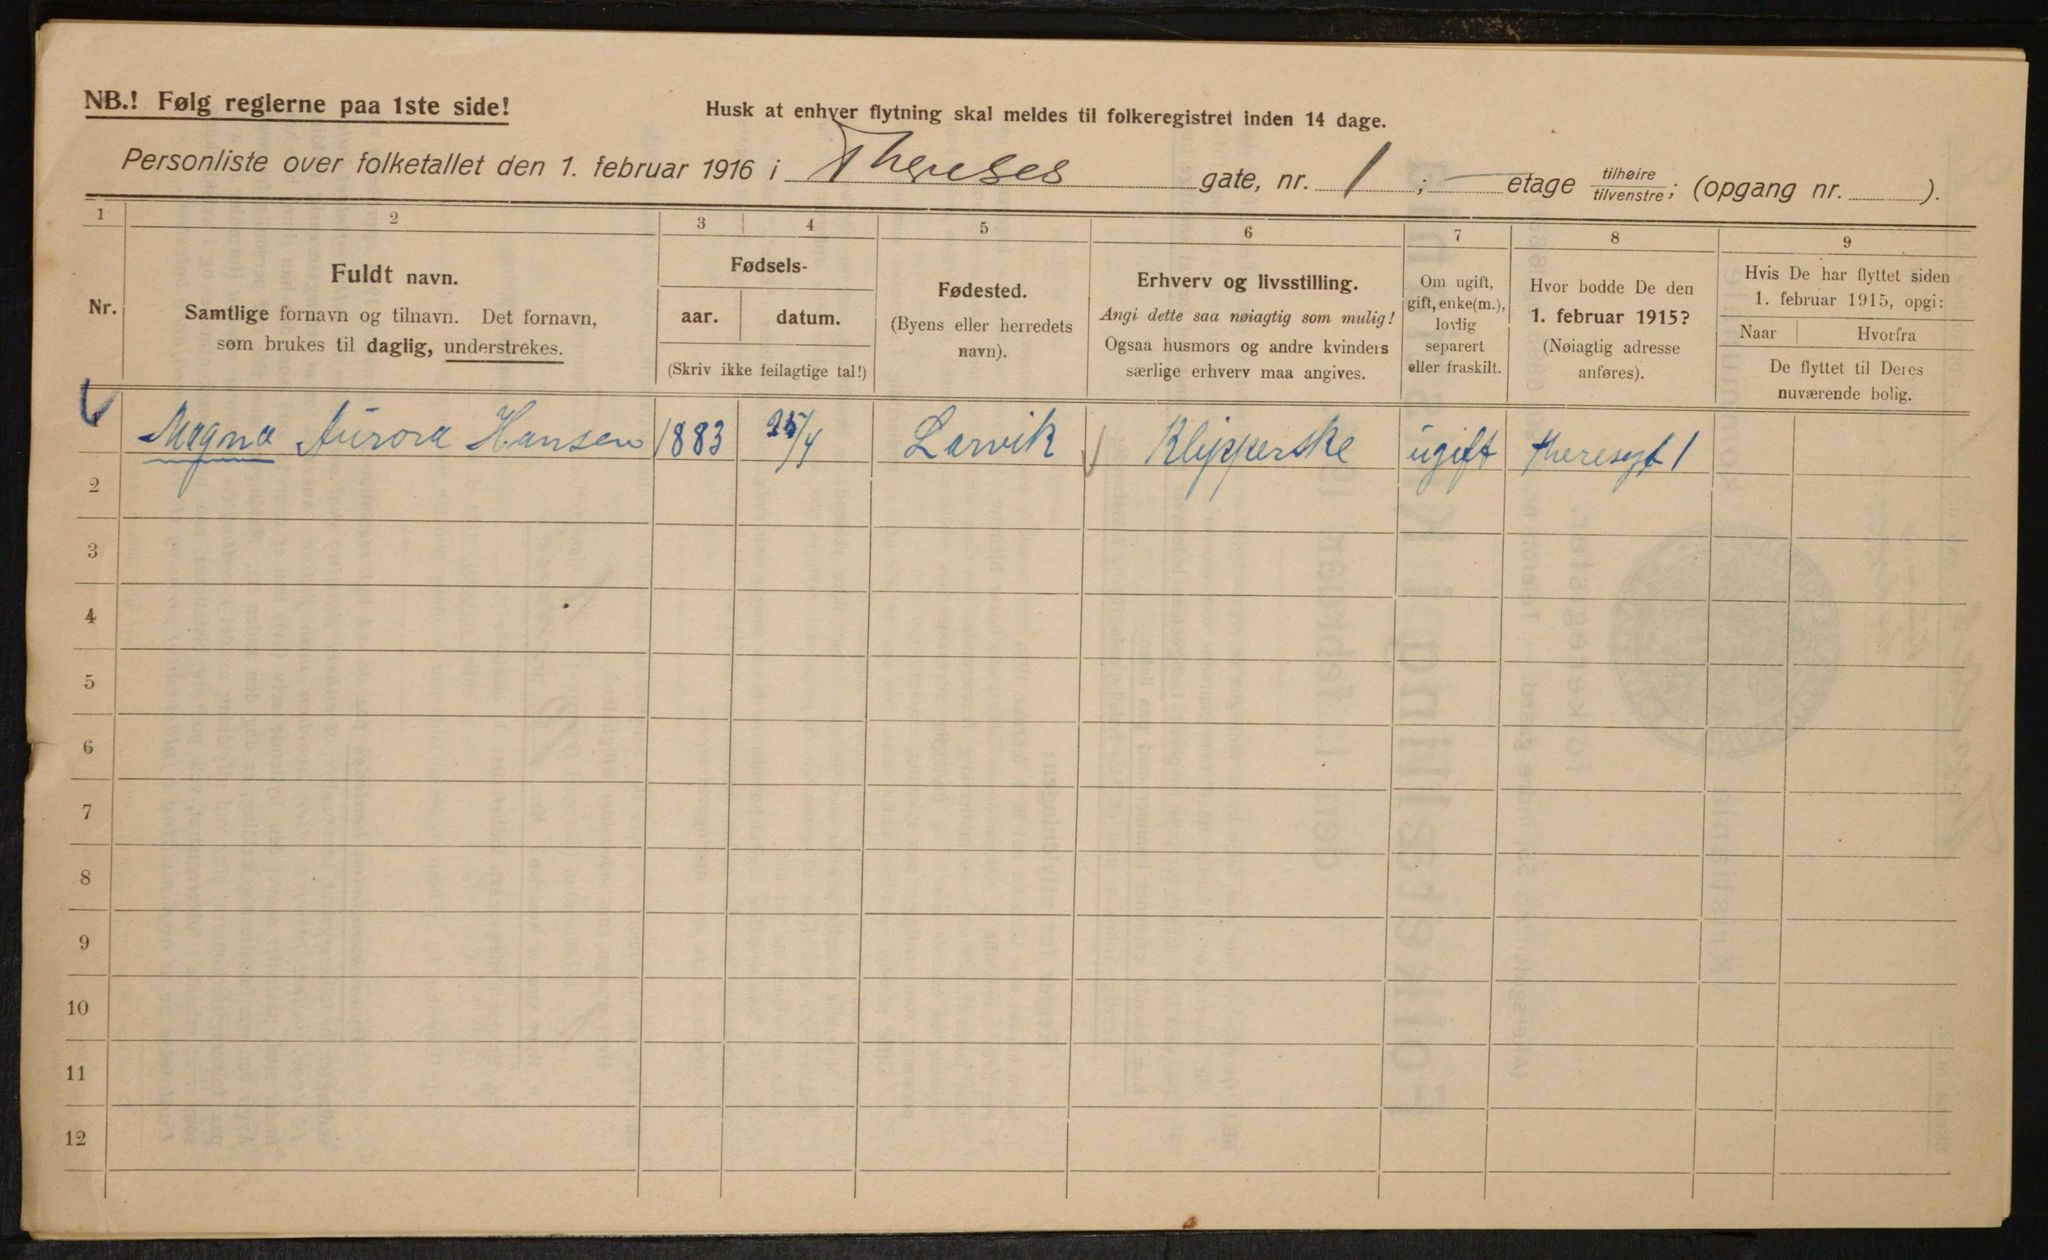 NB.! Følg reglerne paa 1ste side!
Husk at enhver flytning skal meldes til folkeregistret inden 14 dage.
Personliste over folketallet den 1. februar 1916 i Thereses gate, nr. 1 ; — etage tilhøire tilvenstre; (opgang nr. ).
1 2 3 4 5 6 7 8 9
Nr.
Fuldt navn.
Samtlige fornavn og tilnavn. Det fornavn,
som brukes til daglig, understrekes.
Fødsels-
aar. datum.
(Skriv ikke feilagtige tal!)
Fødested.
(Byens eller herredets
navn).
Erhverv og livsstilling.
Angi dette saa nøiagtig som mulig!
Ogsaa husmors og andre kvinders
særlige erhverv maa angives.
Om ugift,
gift, enke(m.),
lovlig
separert
eller fraskilt.
Hvor bodde De den
1. februar 1915?
(Nøiagtig adresse
anføres).
Hvis De har flyttet siden
1. februar 1915, opgi:
Naar Hvorfra
De flyttet til Deres
nuværende bolig.
Magna Aurora Hansen 1883 25/4 Larvik Klipperske ugift Theresegt 1
2
3
4
5
6
7
8
9
10
11
12